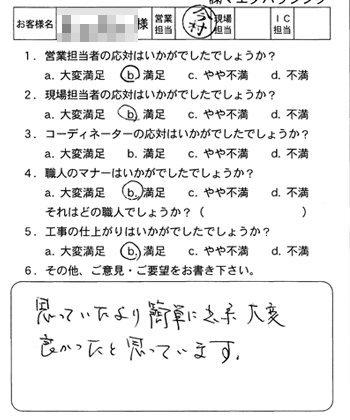 お客様名 様 営業担当 現場担当 IC担当
1．営業担当者の応対はいかがでしたでしょうか？
a. 大変満足 b. 満足 c. やや不満 d. 不満
2．現場担当者の応対はいかがでしたでしょうか？
a. 大変満足 b. 満足 c. やや不満 d. 不満
3．コーディネーターの応対はいかがでしたでしょうか？
a. 大変満足 b. 満足 c. やや不満 d. 不満
4．職人のマナーはいかがでしたでしょうか？
a. 大変満足 b. 満足 c. やや不満 d. 不満
それはどの職人でしょうか？（ ）
5．工事の仕上がりはいかがでしたでしょうか？
a. 大変満足 b. 満足 c. やや不満 d. 不満
6．その他、ご意見・ご要望をお書き下さい。
思っていたより簡単に出来 大変
良かったと思っています。